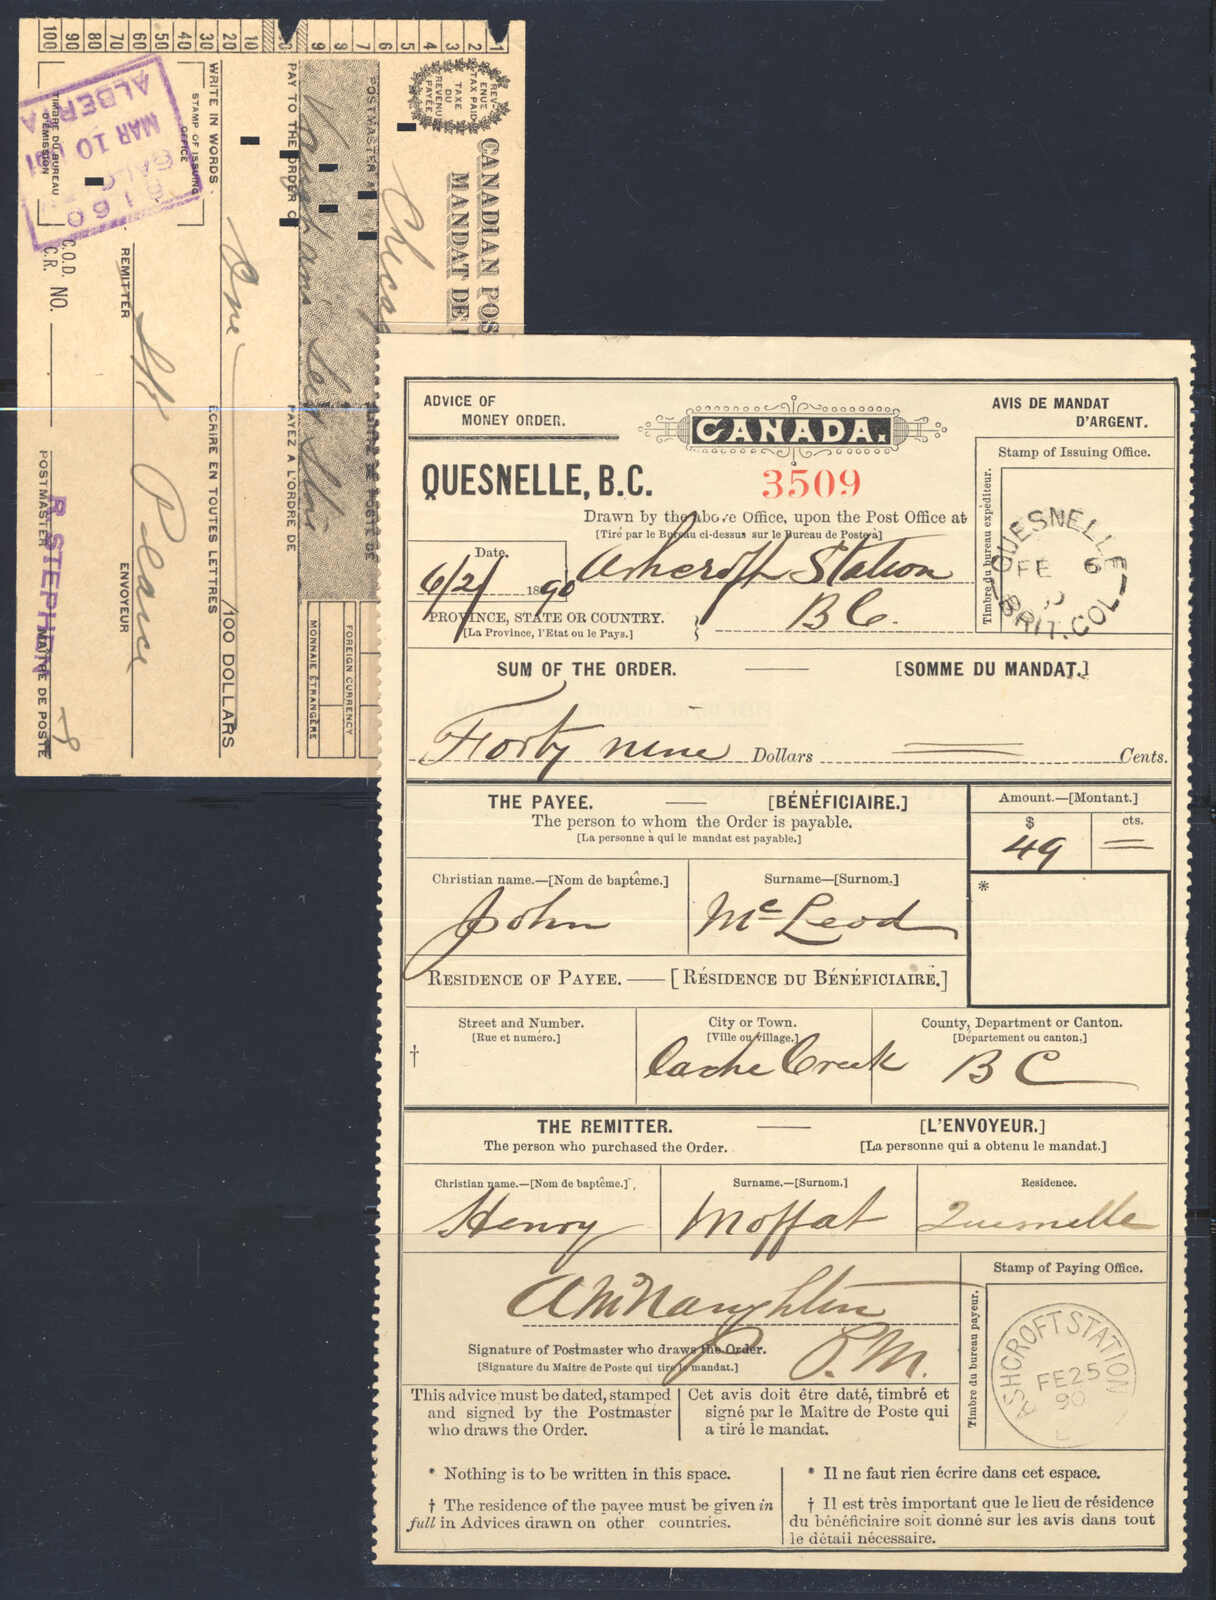 100 90 80 70 60 50 40 30 20 10 9 8 7 6 5 4 3 2 1
REV-
ENUE
TAX PAID
TAXE
DU
REVENU
PAYÉE
CANADIAN POS
MANDAT DE
Chica
POSTMASTER A
PAY TO THE ORDER O
PAYEZ A L'ORDRE DE
WRITE IN WORDS
ÉCRIRE EN TOUTES LETTRES
One
/100 DOLLARS
FOREIGN CURRENCY
MONNAIE ÉTRANGÈRE
STAMP OF ISSUING
OFFICE
TIMBRE DU BUREAU
D'ÉMISSION
ALBERTA
MAR 10
CALG
REMITTER
ENVOYEUR
Pearce
C.O.D. NO.
C.R.
POSTMASTER
MAÎTRE DE POSTE
R. STEPHEN
ADVICE OF
MONEY ORDER.
CANADA.
AVIS DE MANDAT
D'ARGENT.
QUESNELLE, B.C.
3509
Stamp of Issuing Office.
Timbre du bureau expéditeur.
QUESNELLE
FE 6
BRIT. COL
Drawn by the above Office, upon the Post Office at
[Tiré par le Bureau ci-dessus sur le Bureau de Poste à]
Date.
6/2/ 1890
Ashcroft Station
B C.
PROVINCE, STATE OR COUNTRY.
[La Province, l'Etat ou le Pays.]
SUM OF THE ORDER. — [SOMME DU MANDAT.]
Forty nine Dollars Cents.
THE PAYEE. — [BÉNÉFICIAIRE.]
The person to whom the Order is payable.
[La personne à qui le mandat est payable.]
Amount.—[Montant.]
$ cts.
49 =
Christian name.—[Nom de baptême.]
John
Surname—[Surnom.]
McLeod
*
RESIDENCE OF PAYEE. — [RÉSIDENCE DU BÉNÉFICIAIRE.]
Street and Number.
[Rue et numéro.]
†
City or Town.
[Ville ou village.]
Cache Creek
County, Department or Canton.
[Département ou canton.]
B C
THE REMITTER. — [L'ENVOYEUR.]
The person who purchased the Order. [La personne qui a obtenu le mandat.]
Christian name.—[Nom de baptême.]
Henry
Surname.—[Surnom.]
Moffat
Residence.
Quesnelle
A McNaughton
P. M.
Signature of Postmaster who draws the Order.
[Signature du Maître de Poste qui tire le mandat.]
Stamp of Paying Office.
Timbre du bureau payeur.
ASHCROFT STATION
FE 25
90
This advice must be dated, stamped
and signed by the Postmaster
who draws the Order.
Cet avis doit être daté, timbré et
signé par le Maître de Poste qui
a tiré le mandat.
* Nothing is to be written in this space.
† The residence of the payee must be given in
full in Advices drawn on other countries.
* Il ne faut rien écrire dans cet espace.
† Il est très important que le lieu de résidence
du bénéficiaire soit donné sur les avis dans tout
le détail nécessaire.